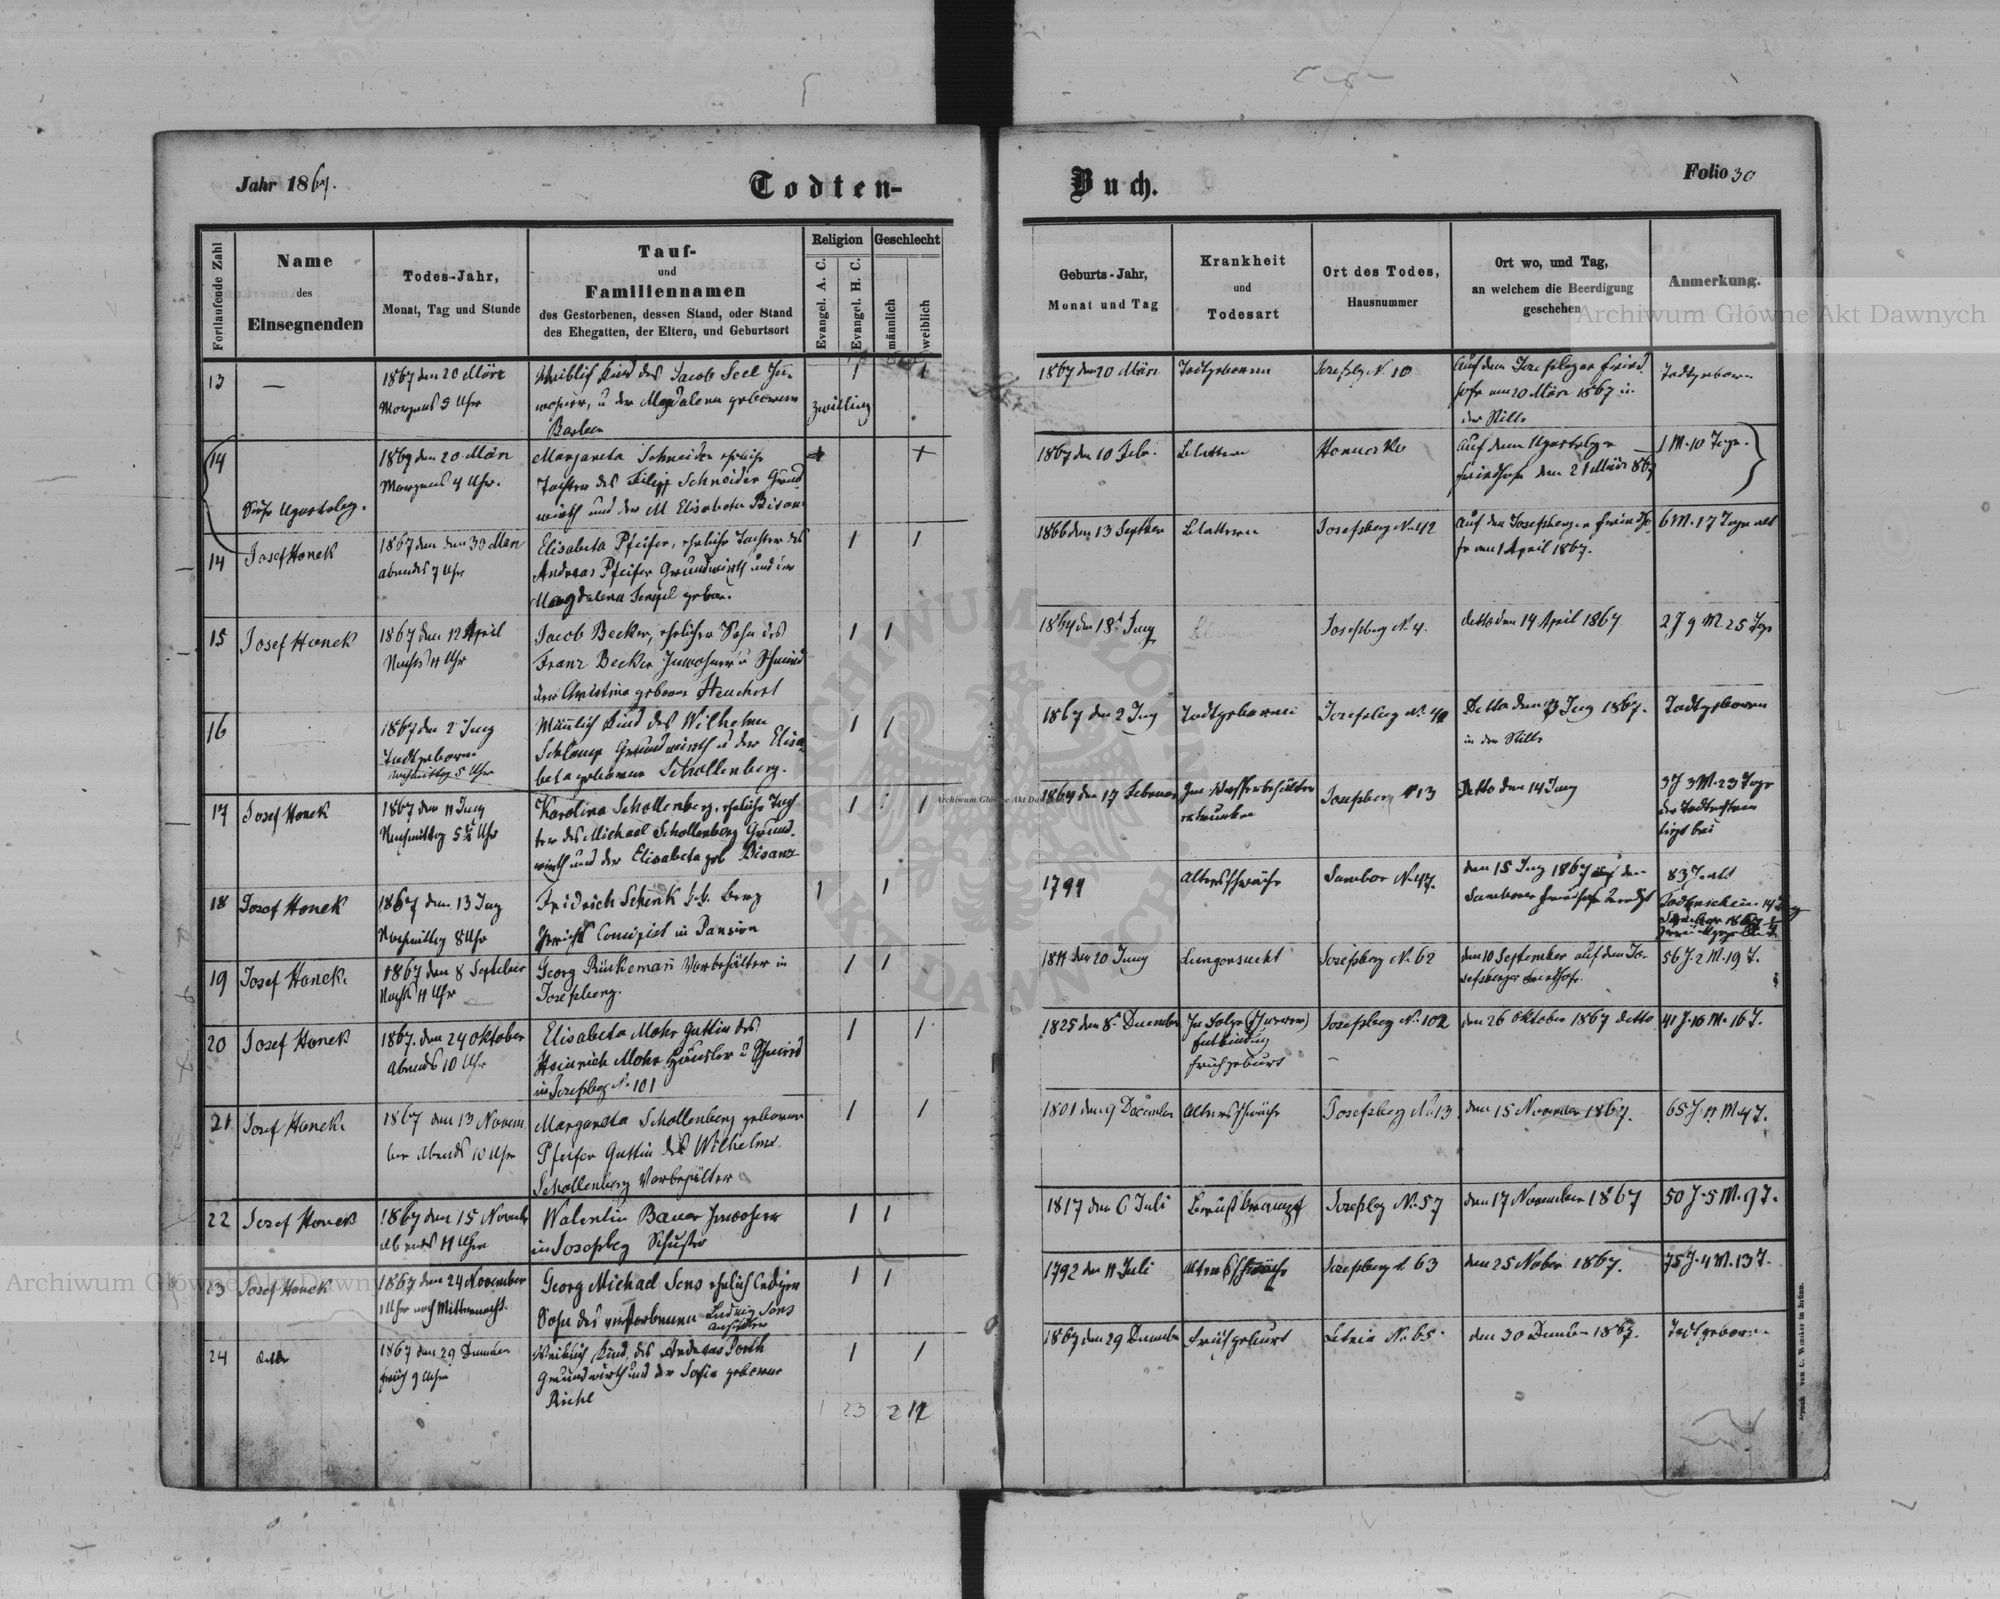 Jahr 1867.
Todten-
Buch.
Folio 30
Fortlaufende Zahl
Name
des
Einsegnenden
Todes-Jahr,
Monat, Tag und Stunde
Tauf-
und
Familiennamen
des Gestorbenen, dessen Stand, oder Stand
des Ehegatten, der Eltern, und Geburtsort
Religion
Evangel. A. C.
Evangel. H. C.
Geschlecht
männlich
weiblich
Geburts-Jahr,
Monat und Tag
Krankheit
und
Todesart
Ort des Todes,
Hausnummer
Ort wo, und Tag,
an welchem die Beerdigung
geschehen
Anmerkung.
Archiwum Główne Akt Dawnych
13
—
1867 den 20 März
Morgens 9 Uhr
Weiblich Kind des Jacob Seel Inn-
wohner, u der Magdalena geborenen
Zwilling
1 1
1867 den 20 März
Todtgeboren
Josefsbg N. 10
Auf dem Josefsberger Fried-
hofe am 20 März 1867 in
der Stille
Todtgeboren
14
Siehe Ugartsberg.
1867 den 20 März
Morgens 4 Uhr.
Margareta Schneider eheliche
Tochter des Filipp Schneider Grund-
wirth und der M Elisabeta Bisanz
1867 den 10 Febr.
Blattern
Auf dem Ugartsberger
Friedhofe den 21 März 867
1 M. 10 Tage.
14
Josef Honek
1867 den 30 März
abends 7 Uhr
Elisabeta Pfeifer, eheliche Tochter des
Andreas Pfeifer Grundwirth und der
Magdalena
1 1
1866 den 13 September
Blattern
Josefsberg N. 42
auf dem Josefsberger Friedho-
fe am 1 April 1867.
6 M. 17 Tage alt
15
Josef Honek
1867 den 12 April
Nachts 11 Uhr
Jacob Becker, ehelicher Sohn des
Franz Becker Inwohner u Schmied
der Christina geborne Heuchert
1 1
1864 den 18 Juny
Josefsberg N. 4.
detto den 14 April 1867
2 J 9 M. 25 Tage
16
1867 den 2 Juny
Todtgeboren
Nachmittag 5 Uhr
Männlich Kind des Wilhelm
Grundwirth u der Elisa-
beta geborene Schollenberg.
1 1
1867 den 2 Juny
Todtgeboren
Detto den 3 Juny 1867.
in der Stille
Todtgeboren
17
Josef Honek
1867 den 11 Juny
Nachmittag 5 1/2 Uhr
Karolina Schollenberg, eheliche Toch-
ter des Michael Schollenberg Grund-
wirth und der Elisabeta geb Bisanz
1 1
1864 den 17 Februar
ertrunken
Josefsberg N 13
Detto den 14 Juny
3 J 3 M. 23 Tage
der Todtenschein
liegt bei
18
Josef Honek
1867 den 13 Juny
Nachmittag 8 Uhr
Fridrich Schenk k.k. Berg
Gericht in Pansion
1 1
Altersschwäche
Sambor N. 47.
den 15 Juny 1867 auf dem
Samborer Friedhofe beerdigt
83 J. alt
Todtenschein 14 Juny
19
Josef Honek.
1867 den 8 September
Nachts 11 Uhr
Georg Vorbehälter in
Josefsberg.
1 1
1811 den 20 Juny
Lungensucht
Josefsberg N. 62
den 10 September auf dem Jo-
sefsberger Friedhofe
56 J. 2 M. 19 T.
20
Josef Honek
1867. den 24 Oktober
Abends 10 Uhr
Elisabeta Mohr Gattin des
Heinrich Mohr Häusler u Schmied
in Josefsberg N. 101
1 1
1825 den 8 December
In Folge
Entbindung
Frühgeburt
Josefsberg N. 102
den 26 Oktober 1867 detto
41 J. 10 M. 16 T.
21
Josef Honek.
1867 den 13 Novem
ber Abends 10 Uhr
Margareta Schollenberg geborene
Pfeifer Gattin des Wilhelm
Schollenberg Vorbehälter
1 1
1801 den 9 December
Altersschwäche
Josefsberg N. 13.
den 15 November 1867.
65 J. 11 M. 4 T.
22
Josef Honek
1867 den 15 Novemb
Abends 11 Uhr
Walentin Bauer Inwohner
in Josefsberg Schuster
1 1
1817 den 6 Juli
Josefsbg N. 57
den 17 November 1867
50 J. 5 M. 9 T.
23
Josef Honek
1867 den 24 November
1 Uhr nach Mitternacht.
Georg Michael Sens ehelich lediger
Sohn des verstorbenen Ludwig Sens
1 1
1792 den 11 Juli
Altersschwäche
Josefsberg N. 63
den 25 Nober 1867.
75 J. 4 M. 13 T.
24
detto
1867 den 29 December
früh 9 Uhr
Weiblich Kind des Andreas Porth
Grundwirth und der Sofia geborene
Richl
1 1
1867 den 29 December
Frühgeburt
Letnia N. 65.
den 30 December 1867.
Todtgeboren
1 23